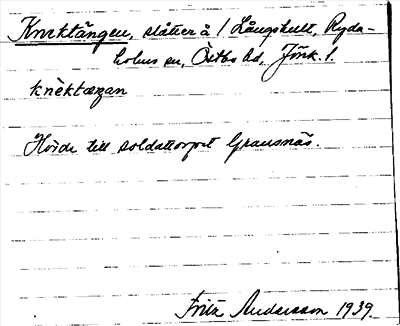 Knektängen, slåtter å / Långhult, Ryda-
holms sn, Östbo hd, Jönk. l.
knèktæŋan
Hörde till soldattorpet Gransnäs.
Fritz Andersson 1939.